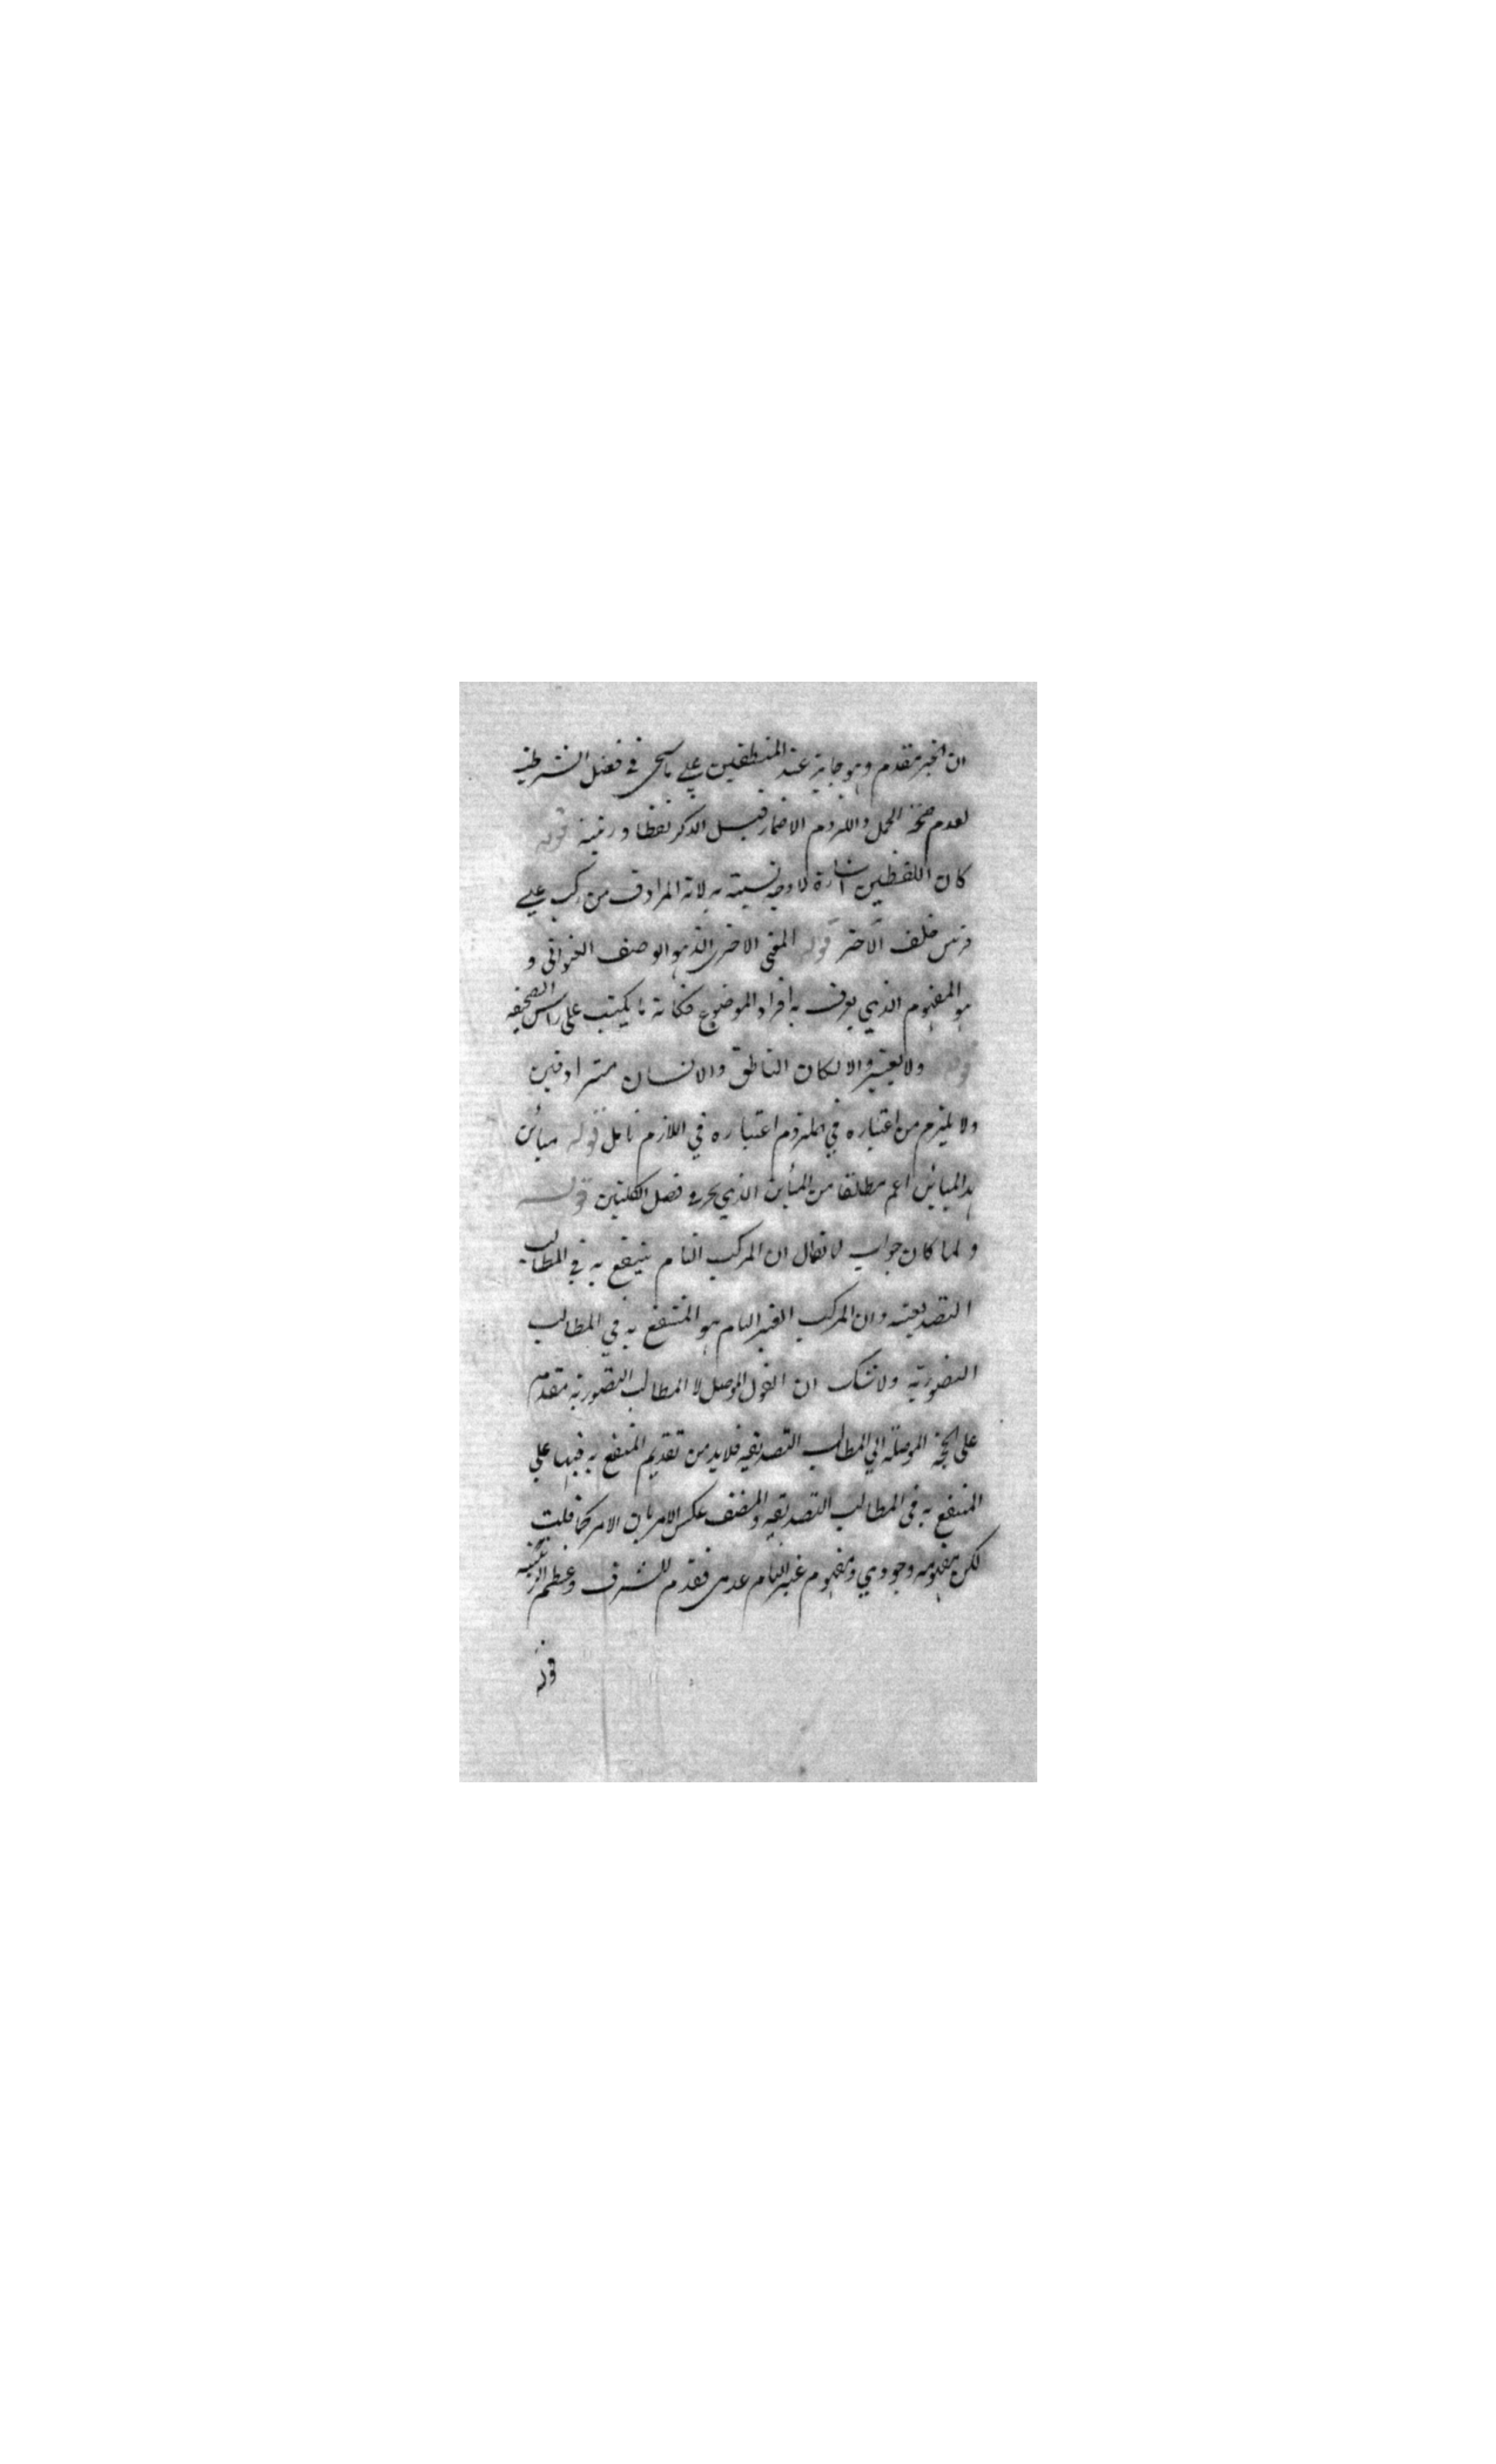 ان الخبر مقدم وهو جايز عند المنطقيين على ما سيجي في فصل الشرطية
لعدم صحة الحمل واللزوم الاضمار قبل الذكر لفظا ورتبة قوله
كان اللفظين اشارة لا وجه نسبته به لانه المرادف من ركب على
فرس خلف الآخر قوله المعنى الاخر الذي هو الوصف العنواني و
هو المفهوم الذي يعرف به افراد الموضوع فكانه ما يكتب على راس الصحيفه
قوله ولا يعتبر والا لكان الناطق والانسان مترادفين
ولا يلزم من اعتباره في الملزوم اعتباره في اللازم تامل قوله مباين
هذا المباين اعم مطلقا من المباين الذي يجي في فصل الكليتين قوله
ولما كان جواب لا يقال ان المركب التام ينتفع به في المطالب
التصديقية وان المركب الغير التام هو المنتفع به في المطالب
التصورية ولا شك ان القول الموصل لا المطالب التصورية مقدم
على الحجة الموصلة الي المطالب التصديقيه فلابد من تقديم المنتفع به فيها على
المنتفع به في المطالب التصديقيه والمصنف عكس الامر بان الامر كما قلت
لكن مفهومه وجودي ومفهوم غير التام عدمي فقدم للشرف وعظم الرتبة
قوله